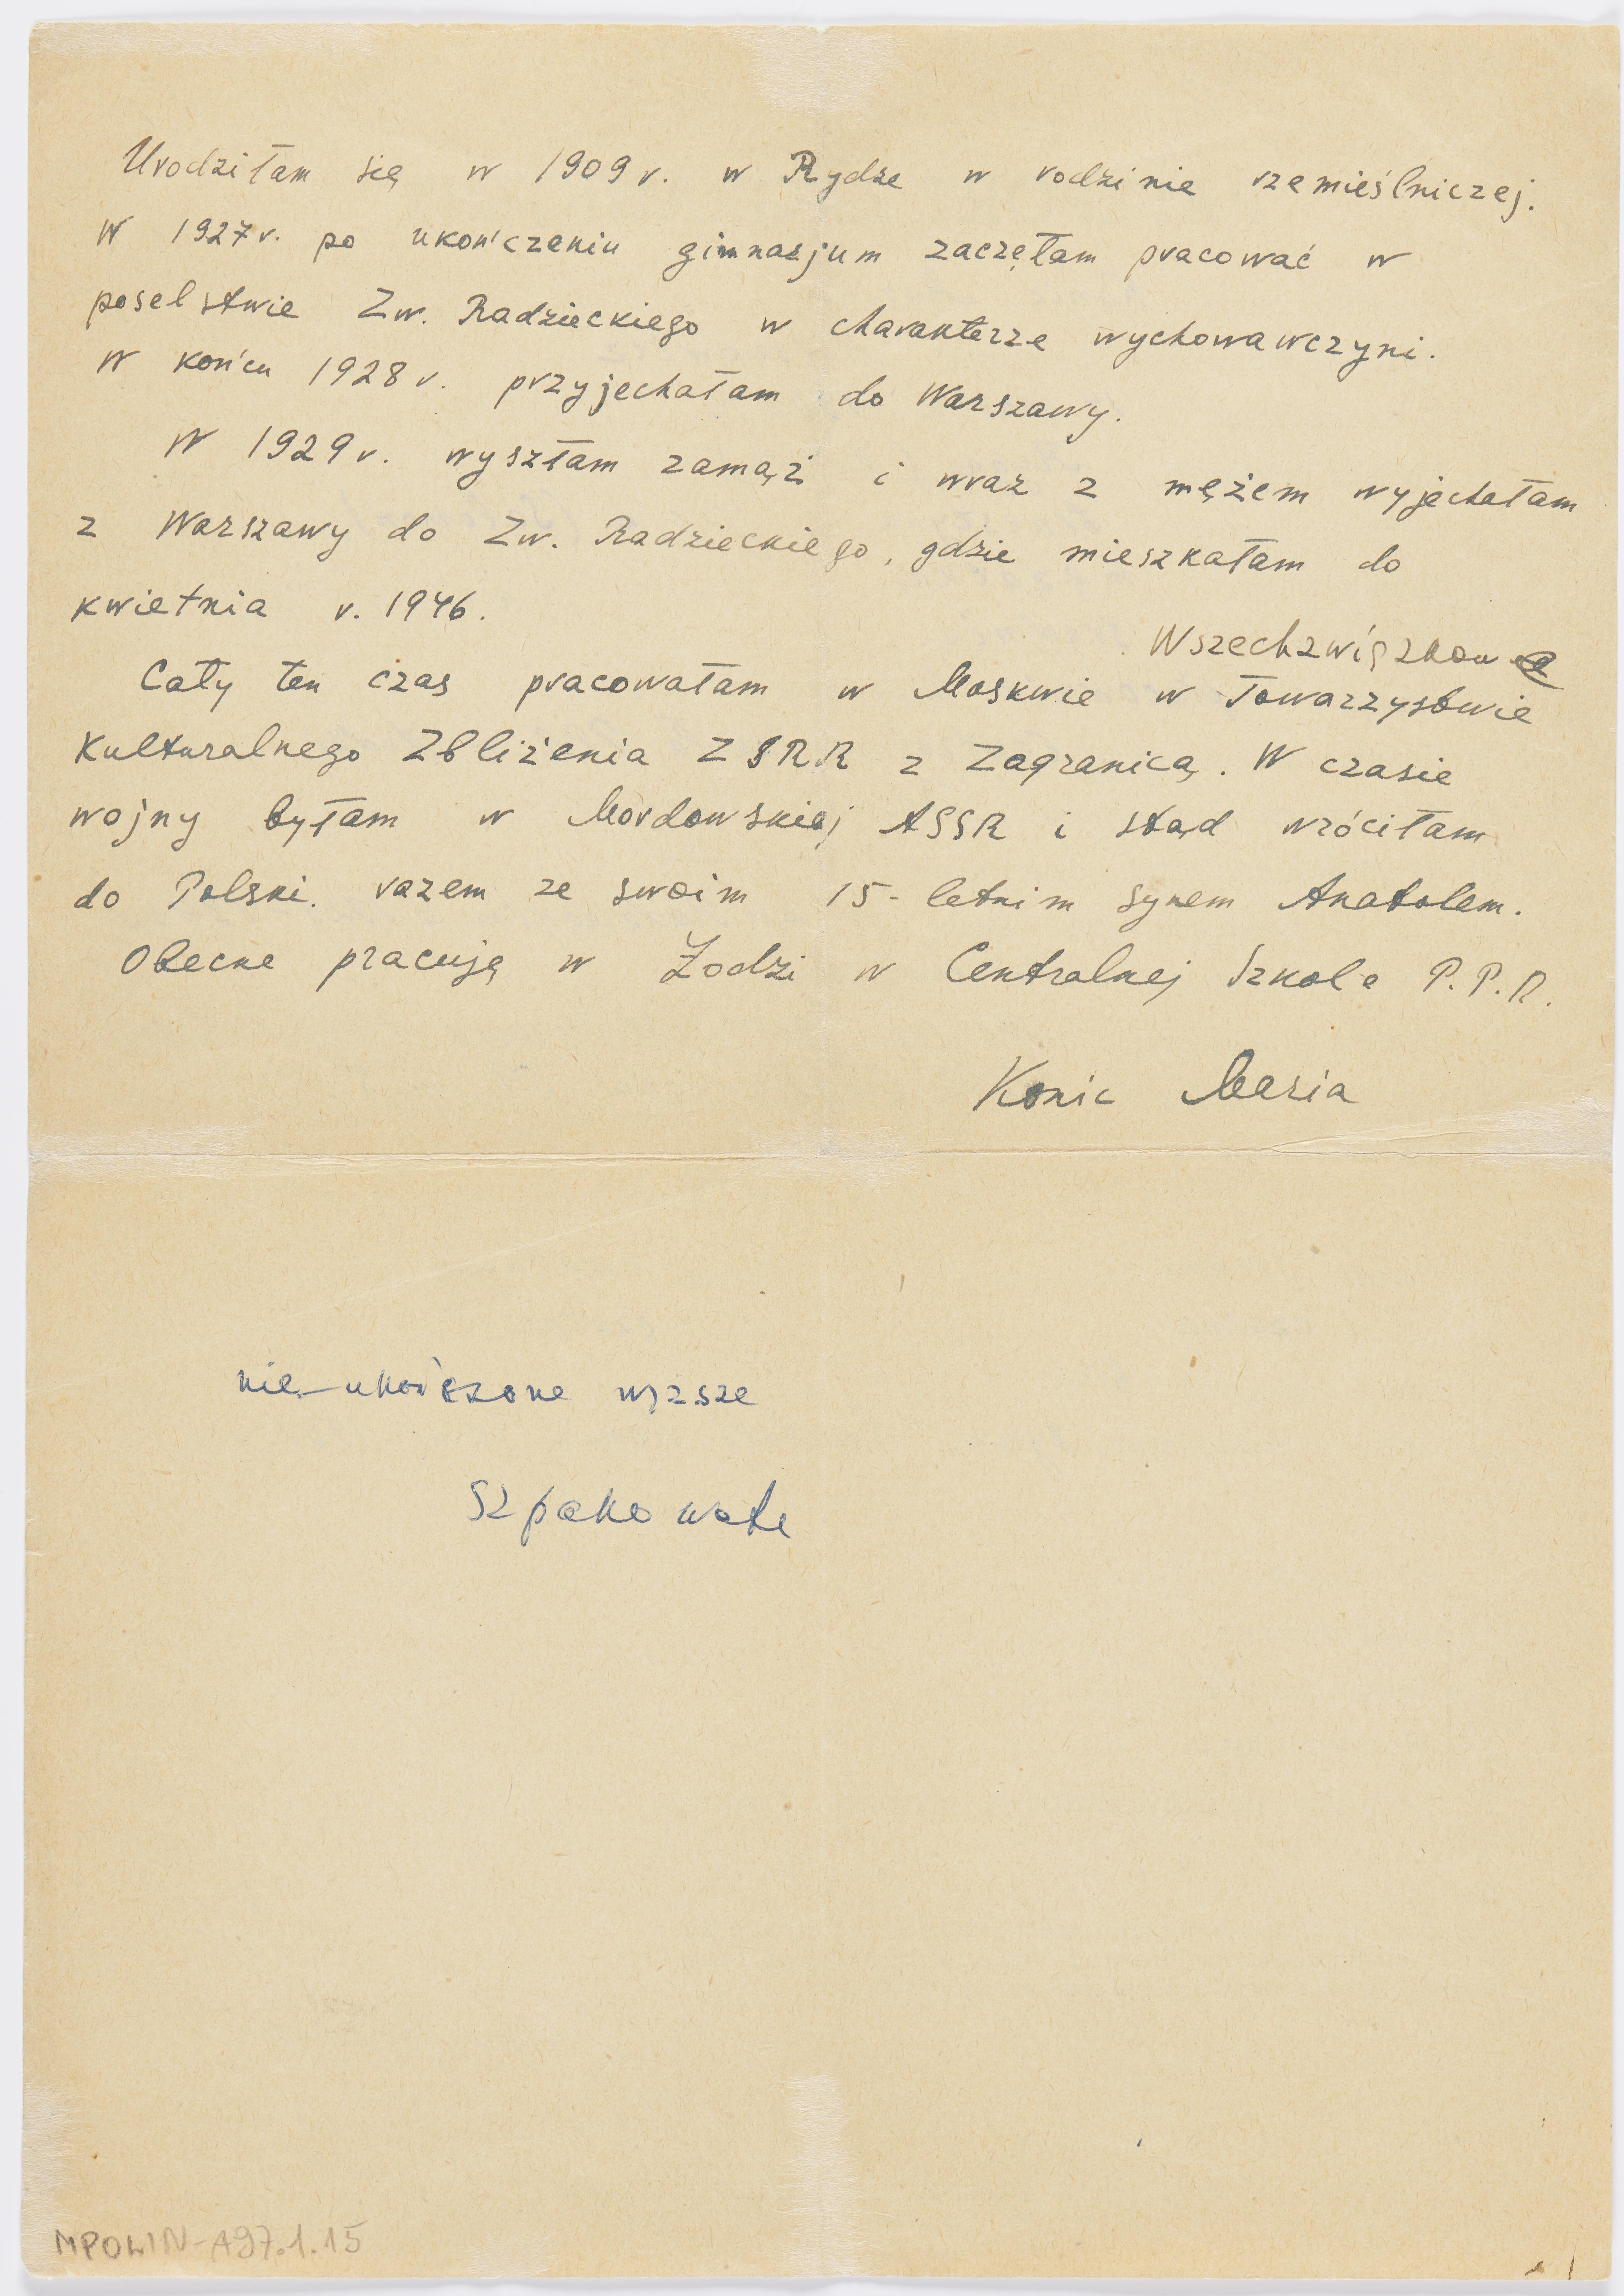 Urodziłam się w 1909 r. w Rydze w rodzinie rzemieślniczej.
W 1927 r. po ukończeniu gimnazjum zaczęłam pracować w
poselstwie Zw. Radzieckiego w charakterze wychowawczyni.
W końcu 1928 r. przyjechałam do Warszawy.
W 1929 r. wyszłam zamąż i wraz z mężem wyjechałam
z Warszawy do Zw. Radzieckiego, gdzie mieszkałam do
kwietnia r. 1946.
Wszechzwiązkow
Cały ten czas pracowałam w Moskwie w Towarzystwie
Kulturalnego Zbliżenia ZSRR z Zagranicą. W czasie
wojny byłam w Mordowskiej ASSR i stąd wróciłam
do Polski. razem ze swoim 15-letnim synem Anatolem.
Obecne pracuję w Łodzi w Centralnej Szkole P.P.R.
Konic Maria
nie-ukończone wyzsze
Szpakowate
MPOLIN-A97.1.15